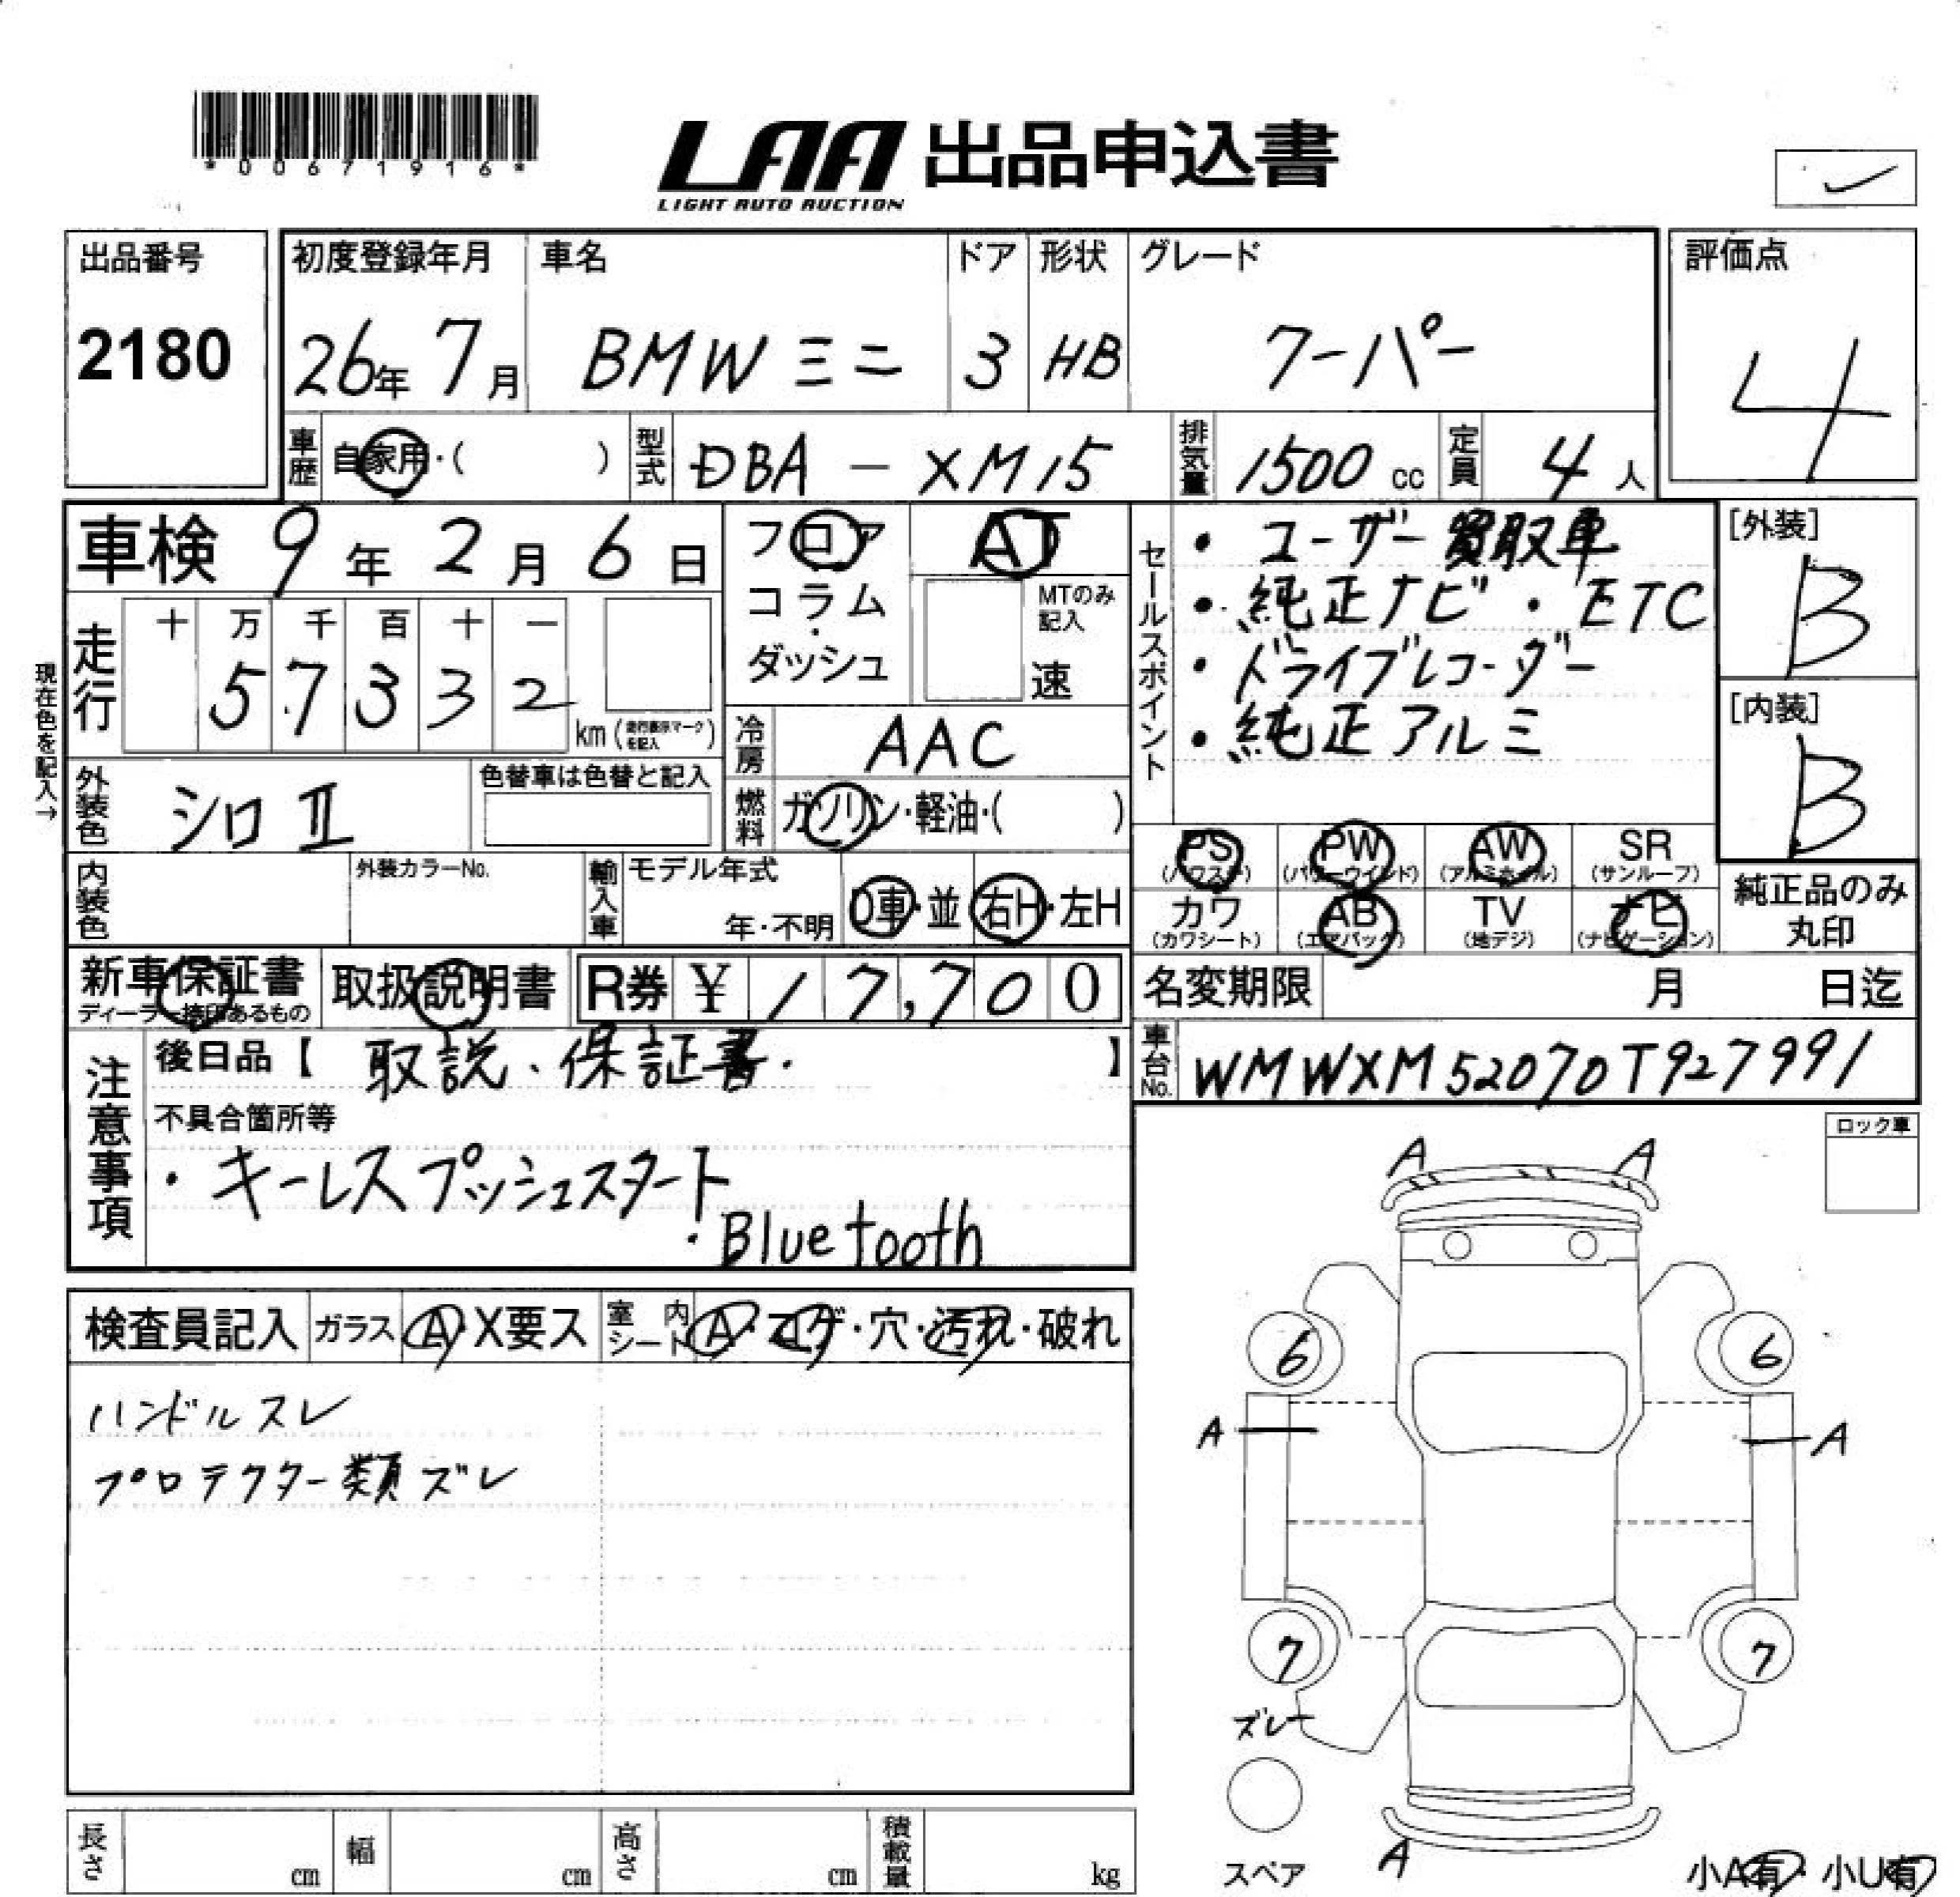 *00671916*
LAA 出品申込書
LIGHT AUTO AUCTION
出品番号
2180
初度登録年月 車名 ドア 形状 グレード
26年 7月 BMWミニ 3 HB クーパー
評価点
4
車歴 自家用・( ) 型式 DBA-XM15 排気量 1500 cc 定員 4人
車検 9年 2月 6日
フロア
コラム
・
ダッシュ
AT
MTのみ
記入
速
セールスポイント
・ユーザー買取車
・純正ナビ・ETC
・ドライブレコーダー
・純正アルミ
[外装]
B
[内装]
B
現在色を記入→
走行 十 万 千 百 十 一
5 7 3 3 2
km(走行表示マークを記入)
冷房 AAC
外装色 シロⅡ 色替車は色替と記入
燃料 ガソリン・軽油・( )
PS PW AW SR
(パワステ) (パワーウインド) (アルミホイル) (サンルーフ)
カワ AB TV ナビ
(カワシート) (エアバック) (地デジ) (ナビゲーション)
純正品のみ
丸印
内装色 外装カラーNo. 輸入車 モデル年式
年・不明 D車・並 右H・左H
新車保証書 取扱説明書 R券 ¥ 17,700
ディーラー捺印あるもの
名変期限 月 日迄
車台No. WMWXM52070T927991
注意事項
後日品【 取説、保証書. 】
不具合箇所等
・キーレスプッシュスタート
・Bluetooth
ロック車
検査員記入 ガラス A・X要ス 室内シート A・コゲ・穴・汚れ・破れ
ハンドルスレ
プロテクター類ズレ
A A
6 6
A A
7 7
ズレ
スペア
A
小A有・小U有
長さ cm 幅 cm 高さ cm 積載量 kg